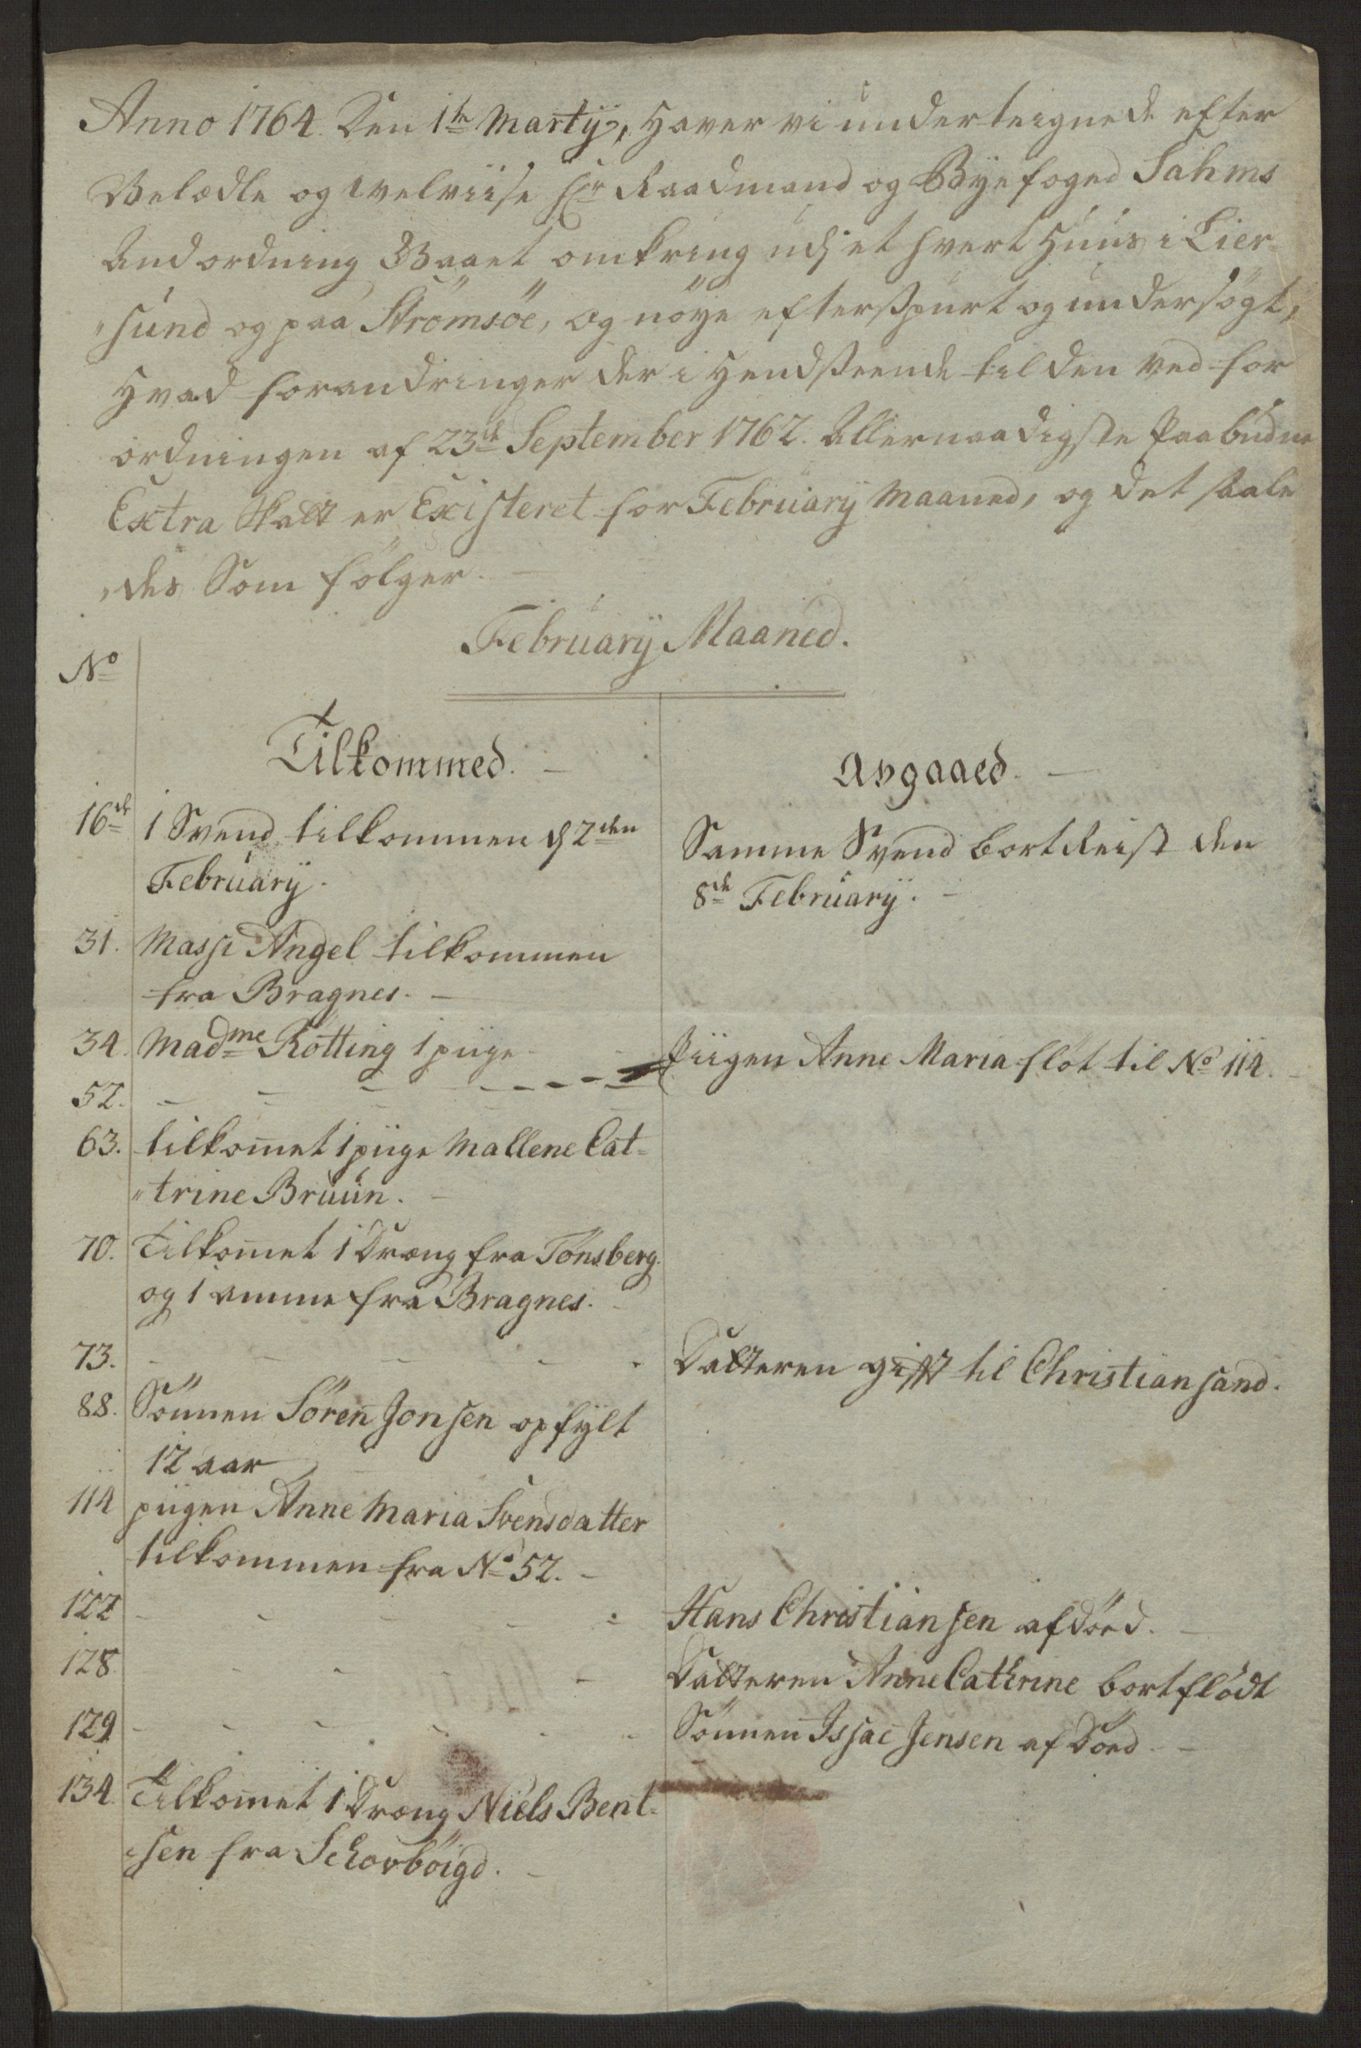 Anno 1764 Den 1te Martÿ, Haver vi underteignede efter
Velædle og Welviise Hr Raadmand og Byefoged Sahms
Andordning Gaaet omkring udj et hvert Huus i Lier-
"sund og paa Strömsöe, og nöye efterspurt og undersögt,
Hvad forandringer der i Hendseende til den ved for
ordningen af 23de September 1762. Allernaadigste Paabudne
Extra Skatt er Existeret for Februarÿ Maaned, og det saale
"des Som fölger.
Februarÿ Maaned.
No
Tilkommed. Avgaaed.
16de 1 Svend tilkommen d 2den Samme Svend bortReist den
Februarÿ. 8de Februarÿ.
31. Massi Angel tilkommen
fra Bragnes.
34. Madme Rotting 1 piige
52. Piigen Anne Maria flöt til No 114.
63. tilkomet 1 piige Mallene Cat-
"trine Bruun.
70. Tilkomet 1 Dræng fra Tönsberg
og 1 amme fra Bragnes.
73. Datteren gifft til Christiansand.
88. Sönnen Sören Jonsen opfylt
12 aar
114 piigen Anne Maria Svensdatter
tilkommen fra No 52.
122 Hans Christiansen afdöed.
128 Datteren Anne Cathrine bortflödt
129 Sönnen Issac Jensen afdöed
134. Tilkomet 1 Dræng Niels Bent-
sen fra Schovböigd.